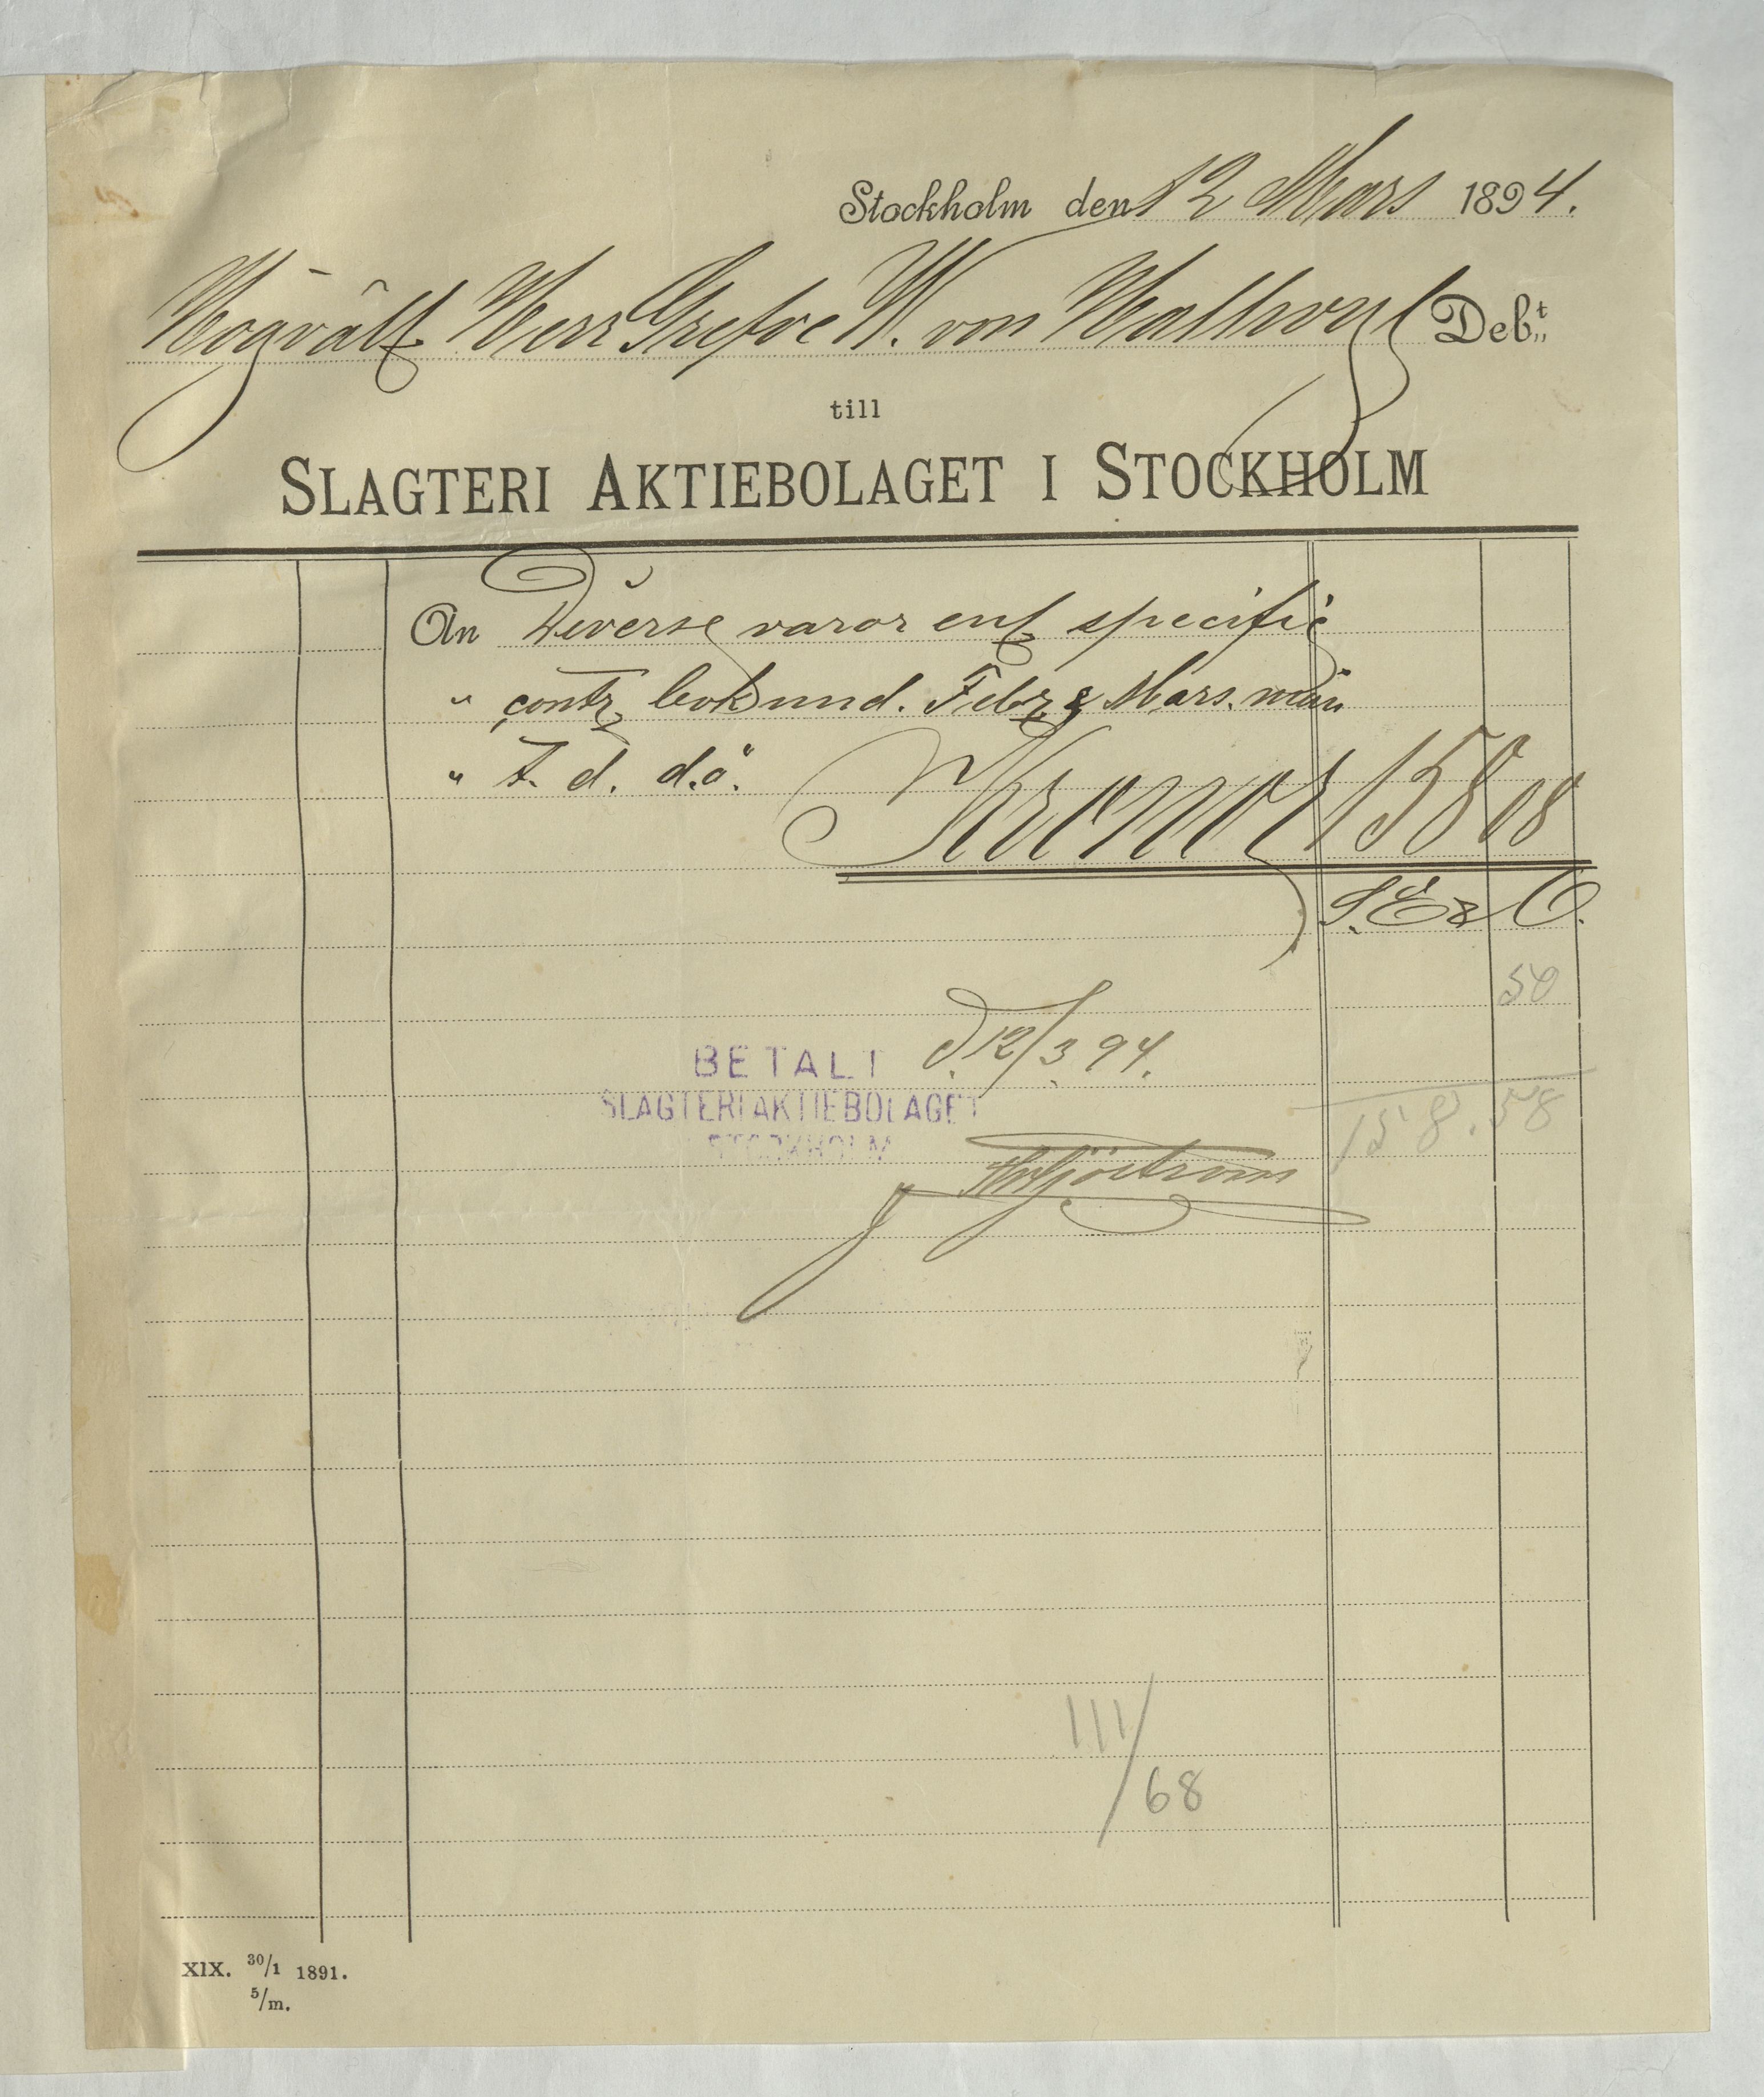 Stockholm den 12 Mars 1894.
Högvält Herr Grefve W. von Hallwyl Deb:t
till
SLAGTERI AKTIEBOLAGET I STOCKHOLM
An Diverse varor enl specific
" contr bok und. Febr & Mars. mån
" T. d. d.o.
Kronor 158 08
S. E & O.
50
d. 12/3 94.
BETALT
SLAGTERIAKTIEBOLAGET
STOCKHOLM
158.58
Sjöström
111/68
XIX. 30/1 1891.
5/m.